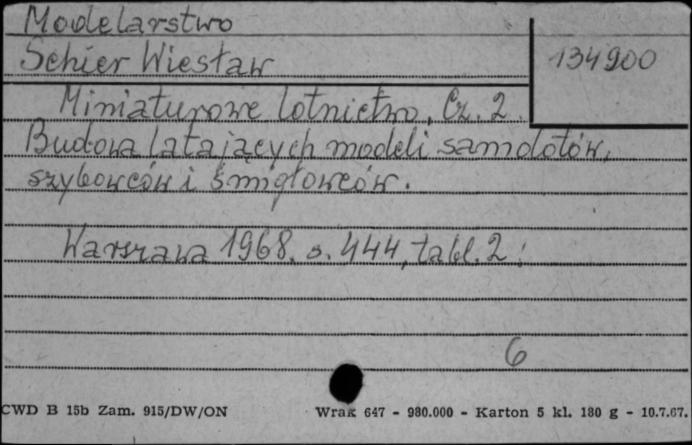 Modelarstwo
Schier Wiesław
134900
Miniaturowe lotnictwo, Cz. 2
Budowa latających modeli samolotów,
szybowców i śmigłowców.
Warszawa 1968. s. 444, tabl. 2.
6
CWD B 15b Zam. 915/DW/ON
Wrak 647 - 980.000 - Karton 5 kl. 180 g - 10.7.67.